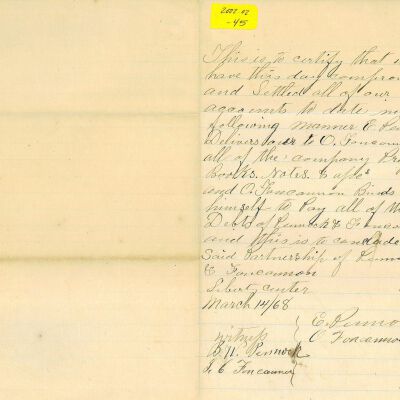 2007.02
-45
This is to certify that
have this day comprom
and Settled all of our
accounts to date in
following manner E Pen
Delivers over to O. Foncann
all of the company Pr
Books. Notes. &
and O. Foncannon Binds
himself to Pay all of th
Debts of Pennock & Foncan
and this is to conclude
Said Partnership of Penno
& Foncannon
Liberty Center
March 14/68
E. Penno
Witness
O Foncannon
Pennock
Foncannon